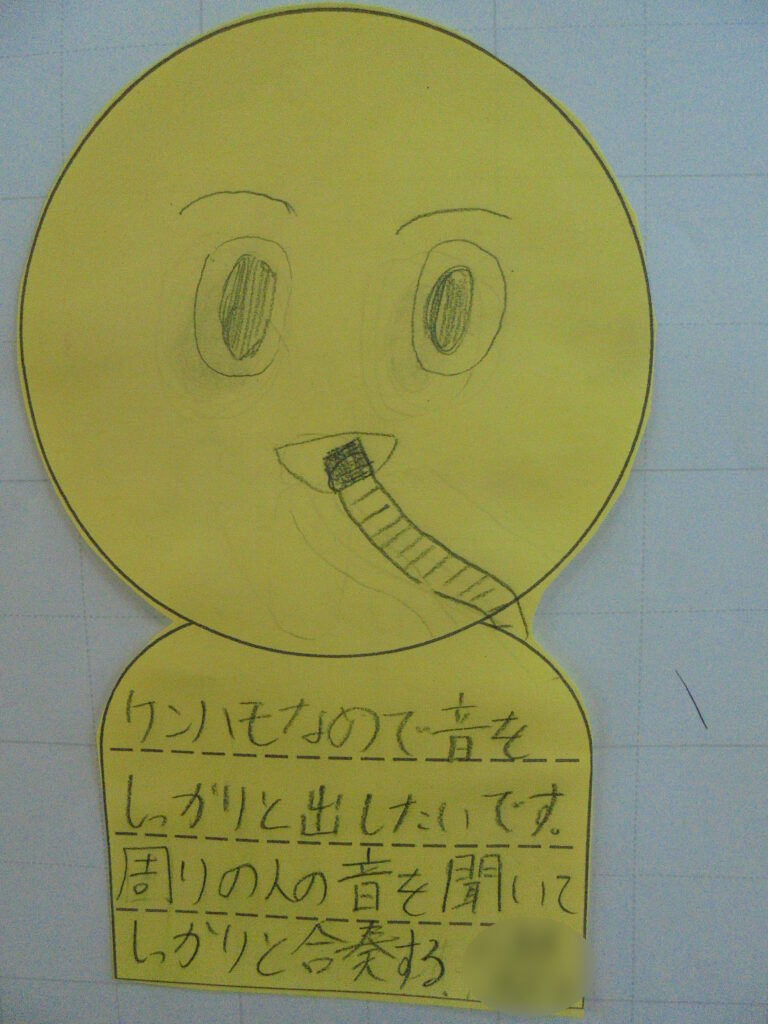 ケンハモなので音を
しっかりと出したいです。
周りの人の音を聞いて
しっかりと合奏する。